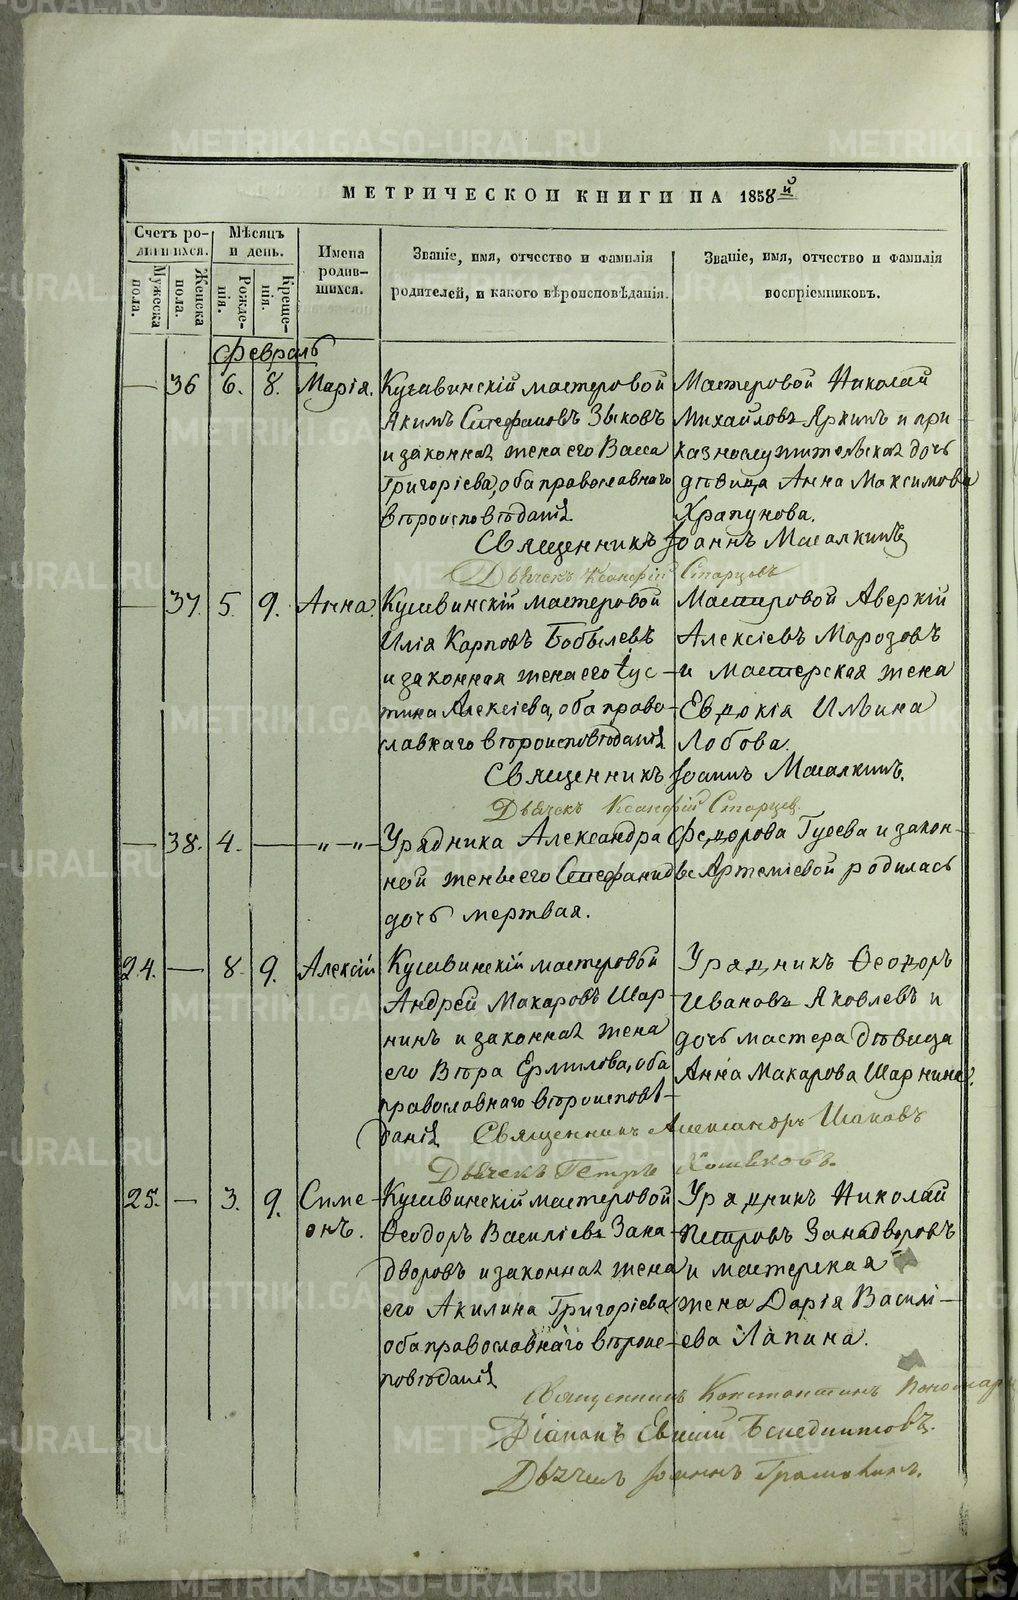 МЕТРИЧЕСКОЙ КНИГИ НА 1858й
Счетъ родившихся.
Мѣсяцъ и день.
Имена родив-
шихся.
Званіе, имя, отчество и фамилія
родителей, и какого вѣроисповѣданія.
Званіе, имя, отчество и фамилія
воспріемниковъ.
Мужеска пола.
Женска пола.
Рожденія.
Крещенія.
Февраль
— 36 6. 8. Марія. Кушвинскій мастеровой Мастеровой Николай
Акимъ Стефановъ Зыковъ Михайловъ Яркинъ и при-
и законная жена его Васса казнослужительская дочь
Григоріева, оба православнаго дѣвица Анна Максимова
вѣроисповѣданія Храпунова.
Священникъ Іоаннъ Масалкинъ
Дьячекъ Ксанфій Старцовъ
— 37. 5. 9. Анна. Кушвинскій мастеровой Мастеровой Аверкій
Илія Карповъ Бобылевъ Алексіевъ Морозовъ
и законная жена его Іус- и мастерская жена
тина Алексіева, оба право- Евдокія Ильина
славнаго вѣроисповѣданія Лобова.
Священникъ Іоаннъ Масалкинъ.
Дьячекъ Ксанфій Старцев
— 38. 4. — „ — „ — Урядника Александра Федорова Гусева и закон-
ной жены его Стефаниды Артеміевой родилась
дочь мертвая.
24. — 8. 9. Алексій Кушвинскій мастеровой Урядникъ Ѳеодоръ
Андрей Макаровъ Шар- Ивановъ Яковлевъ и
нинъ и законная жена дочь мастера дѣвица
его Вѣра Ермилова, оба Анна Макарова Шарнина.
православнаго вѣроисповѣ-
данія Священникъ Александръ
Дьячекъ Петръ
25. — 3. 9. Симе- Кушвинскій мастеровой Урядникъ Николай
онъ. Ѳеодоръ Василіевъ Зана- Петровъ Занадворовъ
дворовъ и законная жена и мастерская
его Акилина Григоріева жена Дарія Василі-
оба православнаго вѣроис- ева Лапина.
повѣданія
Священникъ Константинъ Пономар
Діаконъ Евгеній
Дьячекъ Іоаннъ
METRIKI.GASO-URAL.RU